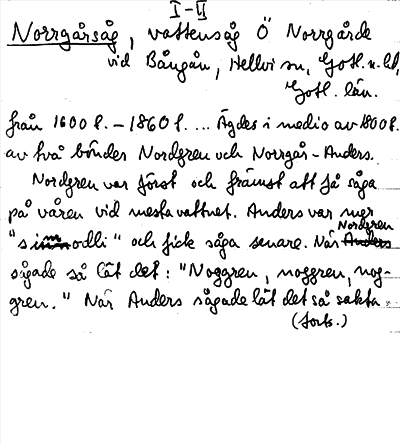 I-II
Norrgårsåg, vattensåg Ö Norrgårde
vid Bångån, Hellvi sn, Gotl. n. hd,
Gotl. län.
från 1600 t. - 1860 t. ... Ägdes i medio av 1800 t.
av två bönder Nordgren och Norrgår-Anders.
Nordgren var först och främst att få såga
på våren vid mesta vattnet. Anders var mer
"smodli" och fick såga senare. När Nordgren
sågade så lät det: "Noggren, noggren, nog-
gren." När Anders sågade lät det så sakta
(forts.)